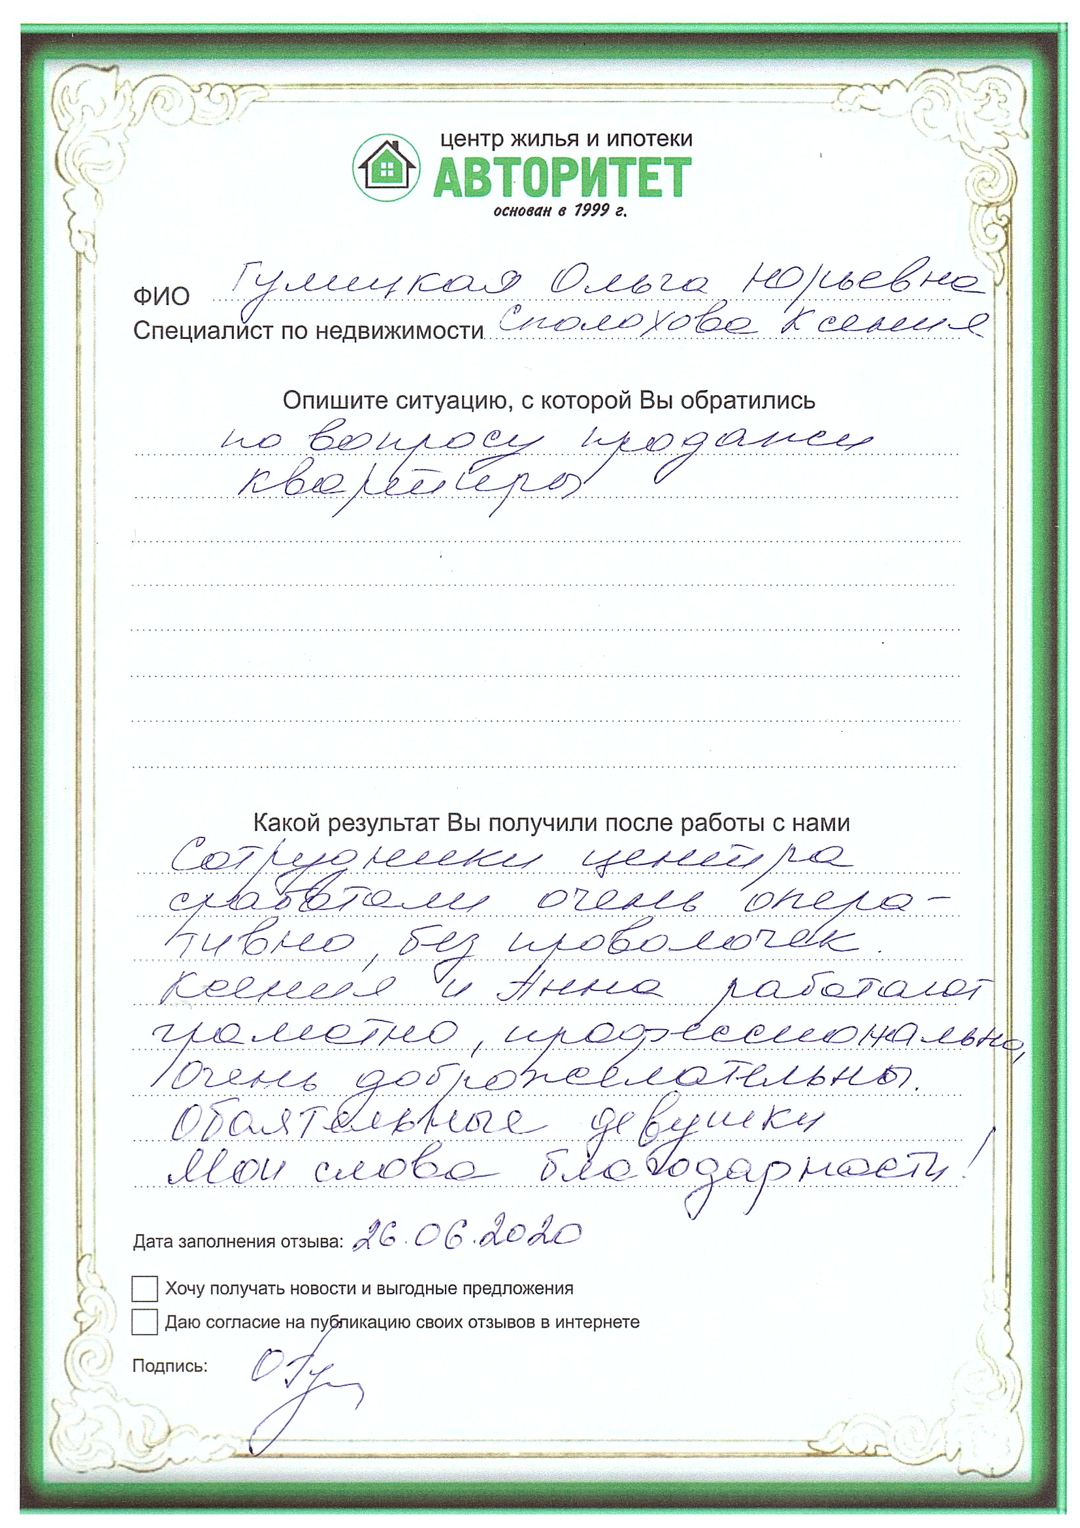 центр жилья и ипотеки
АВТОРИТЕТ
основан в 1999 г.
ФИО Гулицкая Ольга Юрьевна
Специалист по недвижимости Сполохова Ксения
Опишите ситуацию, с которой Вы обратились
по вопросу продажи
квартиры
Какой результат Вы получили после работы с нами
Сотрудники центра
сработали очень опера-
тивно, без проволочек.
Ксения и Анна работают
грамотно, профессионально,
очень доброжелательны.
Обаятельные девушки
Мои слова благодарности!
Дата заполнения отзыва: 26.06.2020
Хочу получать новости и выгодные предложения
Даю согласие на публикацию своих отзывов в интернете
Подпись: